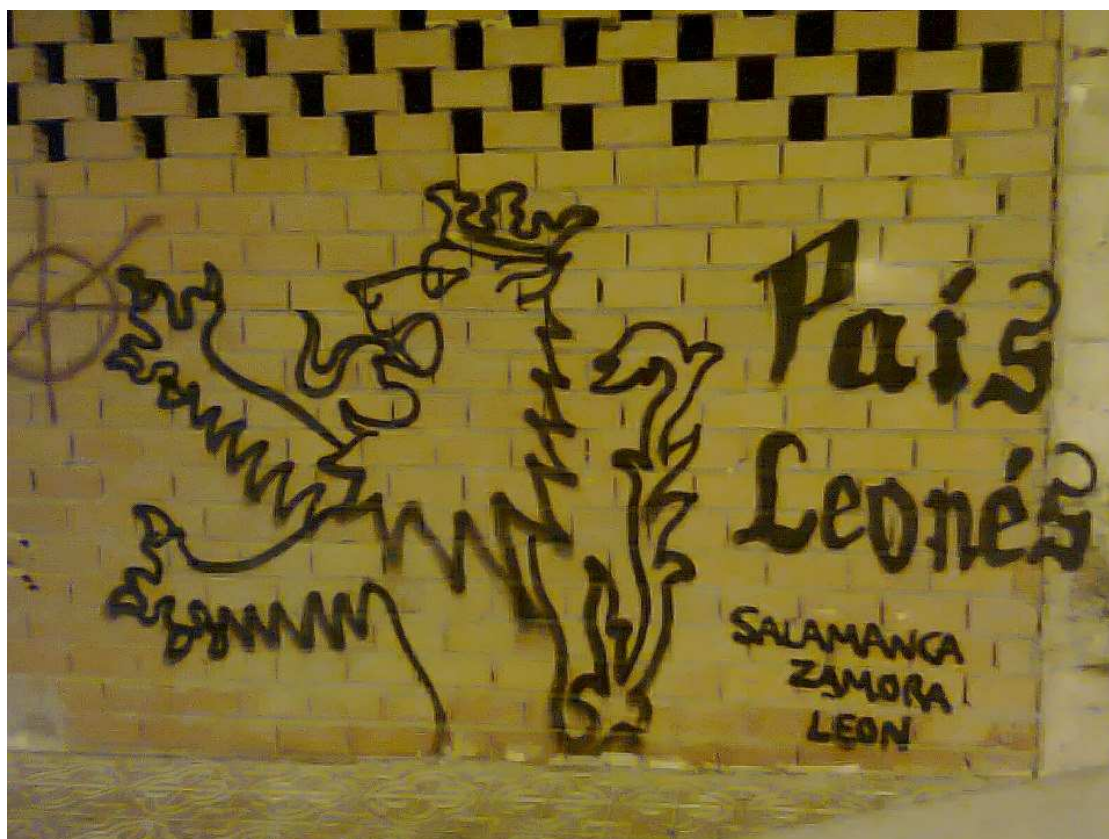 País
Leonés
SALAMANCA
ZAMORA
LEON